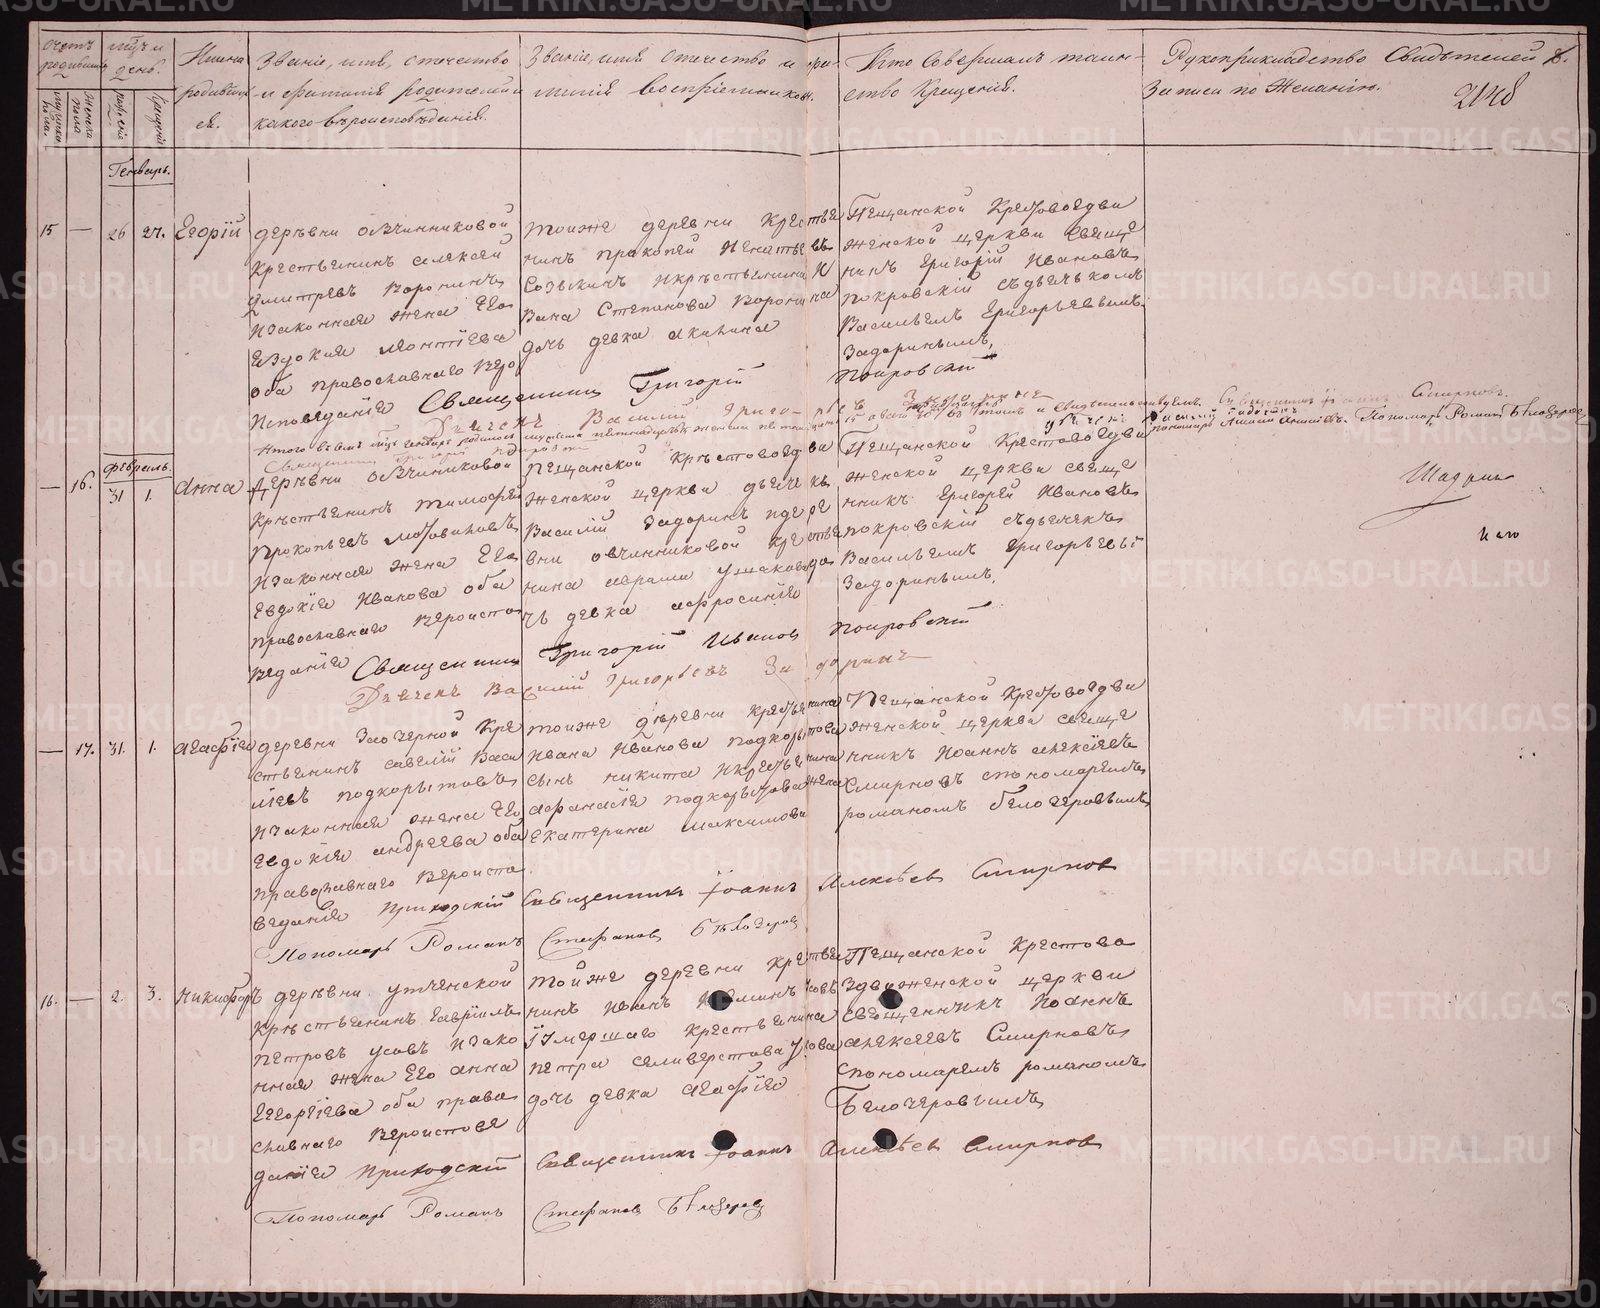 Счетъ родившихся
мужеска пола.
женска пола
Мѣсяцъ и день.
рожденія
крещенія
Имена родившихся.
Званіе, имя, отечество
и фамилія родителей и
какого вѣроисповѣданія.
Званіе, имя отечество и фа-
милія воспріемниковъ.
Кто Совершалъ таин-
ство Крещенія.
Рукоприкладство Свидѣтелей
Записи по Желанію.
2048
Генварь.
15 — 26 27. Егорій
деревни овчинниковой
крестьянинъ алексей
дмитревъ Воронинъ
изаконная жена Его
Евдокия
оба православнаго Веро
Исповеданія
тоиже деревни Кресть
нинъ прокопей Игнатьевъ
Созыкинъ икрестьянина И
вана Степанова Воронина
дочь девка акилина
Пещанской Крестовоздви
женской церкви свяще
никъ григорій Ивановъ
покровскій съдьячькомъ
Васильемъ григорьевымъ
Задоринымъ,
Священникъ Григорій Покровскій
Дьячекъ Василий Григорьевъ Задоринъ
Священникъ Іоаннъ Смирновъ.
Пономарь Романъ Бѣлозеровъ
Февраль.
— 16. 31 1. Анна
деревни овчинниковой
Крестьянинъ тимофей
Прокопьевъ
изаконная жена Его
Евдокія Иванова оба
православнаго Вероиспо
веданія
Пещанской Крестовоздви
женской церкви дьячекъ
Василій Задоринъ идере
вни овчинниковой кресть
нина абрама ушакова до
чь девка афросинія
Пещанской Крестовоздви
женской церкви свяще
нникъ Григорей Ивановъ
покровскій съдьячекъ
Васильемъ григорьевы
Задоринымъ,
Священникъ Григорій Иванов Покровскій
Дьячекъ Василій Григорьевъ Задоринъ
— 17. 31. 1. агафія
деревни Заозерной Кре
стьянинъ савелій Васи
льевъ подкорытовъ
изаконная жена Его
Евдокія андреева оба
православнаго Вероиспо
веданія
тоиже деревни крестьянина
Ивана Иванова подкорытова
сынъ никита икрестьянина
афанасія подкорытова жена
Екатерина максимова
Пещанской Крестовоздви
женской церкви свяще
нникъ Иоаннъ алексѣевъ
Смирновъ спономаремъ
романомъ белозеровымъ
Приходскій Священникъ Іоаннъ Алексѣев Смирнов
Пономарь Романъ Стефанов Бѣлозеров
16. — 2. 3. никифоръ
деревни утиченской
Крестьянинъ гаврилъ
петровъ усовъ изако
нная жена Его анна
Егоргіева оба право
славнаго Вероиспове
данія
тойже деревни кресть
нинъ Иванъ
умершаго крестьянина
петра селиверстова усова
дочь девка агафія
Пещанской Крестово
Здвиженской церкви
священникъ Иоаннъ
алексеевъ Смирновъ
спономаремъ романомъ
Белозеровымъ
Приходскій Священникъ Іоаннъ Алексѣев Смирнов
Пономарь Романъ Стефанов Бѣлозеров
METRIKI.GASO-URAL.RU